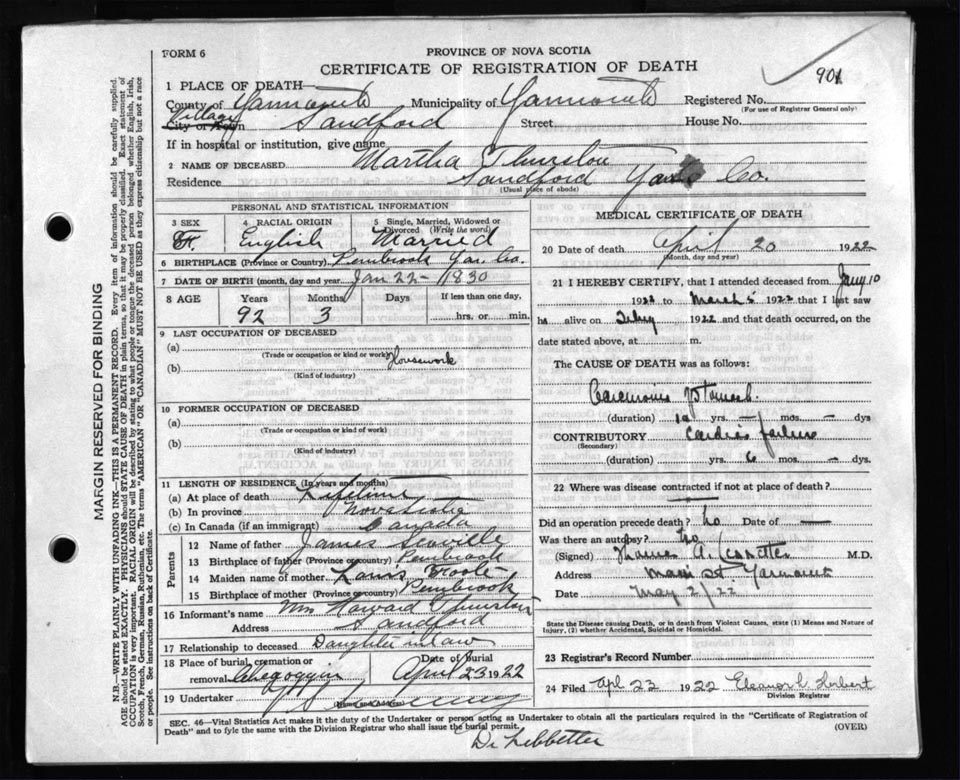 FORM 6
PROVINCE OF NOVA SCOTIA
CERTIFICATE OF REGISTRATION OF DEATH
901
1 PLACE OF DEATH—
County of Yarmouth Municipality of Yarmouth Registered No.
(For use of Registrar General only)
Village
City or Town Sandford Street House No.
If in hospital or institution, give name
2 NAME OF DECEASED Martha Thurston
Residence Sandford Yar Co.
(Usual place of abode)
PERSONAL AND STATISTICAL INFORMATION
3 SEX 4 RACIAL ORIGIN 5 Single, Married, Widowed or Divorced (Write the word)
F. English Married
6 BIRTHPLACE (Province or Country) Pembrook Yar. Co.
7 DATE OF BIRTH (month, day and year) Jan 22 - 1830
8 AGE Years Months Days If less than one day,
92 3 hrs. or min.
9 LAST OCCUPATION OF DECEASED
(a)
(Trade or occupation or kind or work) Housework
(b)
(Kind of industry)
10 FORMER OCCUPATION OF DECEASED
(a)
(Trade or occupation or kind of work)
(b)
(Kind of industry)
11 LENGTH OF RESIDENCE (In years and months)
(a) At place of death Lifetime
(b) In province Nova Scotia
(c) In Canada (if an immigrant) Canada
Parents
12 Name of father James Scoville
13 Birthplace of father (Province or country) Pembrook
14 Maiden name of mother
15 Birthplace of mother (Province or country) Pembrook
16 Informant's name Mrs Howard Thurston
Address Sandford
17 Relationship to deceased Daughter in law
18 Place of burial, cremation or removal Chegoggin Date of burial April 23 1922
19 Undertaker
(Name and Address)
MEDICAL CERTIFICATE OF DEATH
20 Date of death April 20 1922
(Month, day and year)
21 I HEREBY CERTIFY, that I attended deceased from Jany 10
1922 to March 5 1922 that I last saw
h alive on 1922 and that death occurred, on
date stated above, at m.
The CAUSE OF DEATH was as follows:
Carcinoma of Stomach
(duration) yrs. — mos. — dys
CONTRIBUTORY Cardiac failure
(Secondary)
(duration) yrs. 6 mos. — dys.
22 Where was disease contracted if not at place of death?
Did an operation precede death? no Date of —
Was there an autopsy? no
(Signed) Thomas A. M.D.
Address Main St. Yarmouth
Date May 2/22
State the Disease causing Death, or in death from Violent Causes, state (1) Means and Nature of Injury, (2) whether Accidental, Suicidal or Homicidal.
23 Registrar's Record Number
24 Filed Apl 23 1922 Eleanor L. Herbert
Division Registrar
SEC. 46—Vital Statistics Act makes it the duty of the Undertaker or person acting as Undertaker to obtain all the particulars required in the "Certificate of Registration of
Death" and to fyle the same with the Division Registrar who shall issue the burial permit. (OVER)
Dr Lebbetter
MARGIN RESERVED FOR BINDING
N.B.—WRITE PLAINLY WITH UNFADING INK—THIS IS A PERMANENT RECORD. Every item of information should be carefully supplied.
AGE should be stated EXACTLY. PHYSICIANS should STATE CAUSE OF DEATH in plain terms, so that it may be properly classified. Exact statement of
OCCUPATION is very important. RACIAL ORIGIN will be described by stating to what people or tongue the deceased person belonged whether English, Irish,
Scotch, French, German, Russian, Ruthenian, etc. The terms "AMERICAN" OR "CANADIAN" MUST NOT BE USED as they express citizenship but not a race
or people. See instructions on back of Certificate.